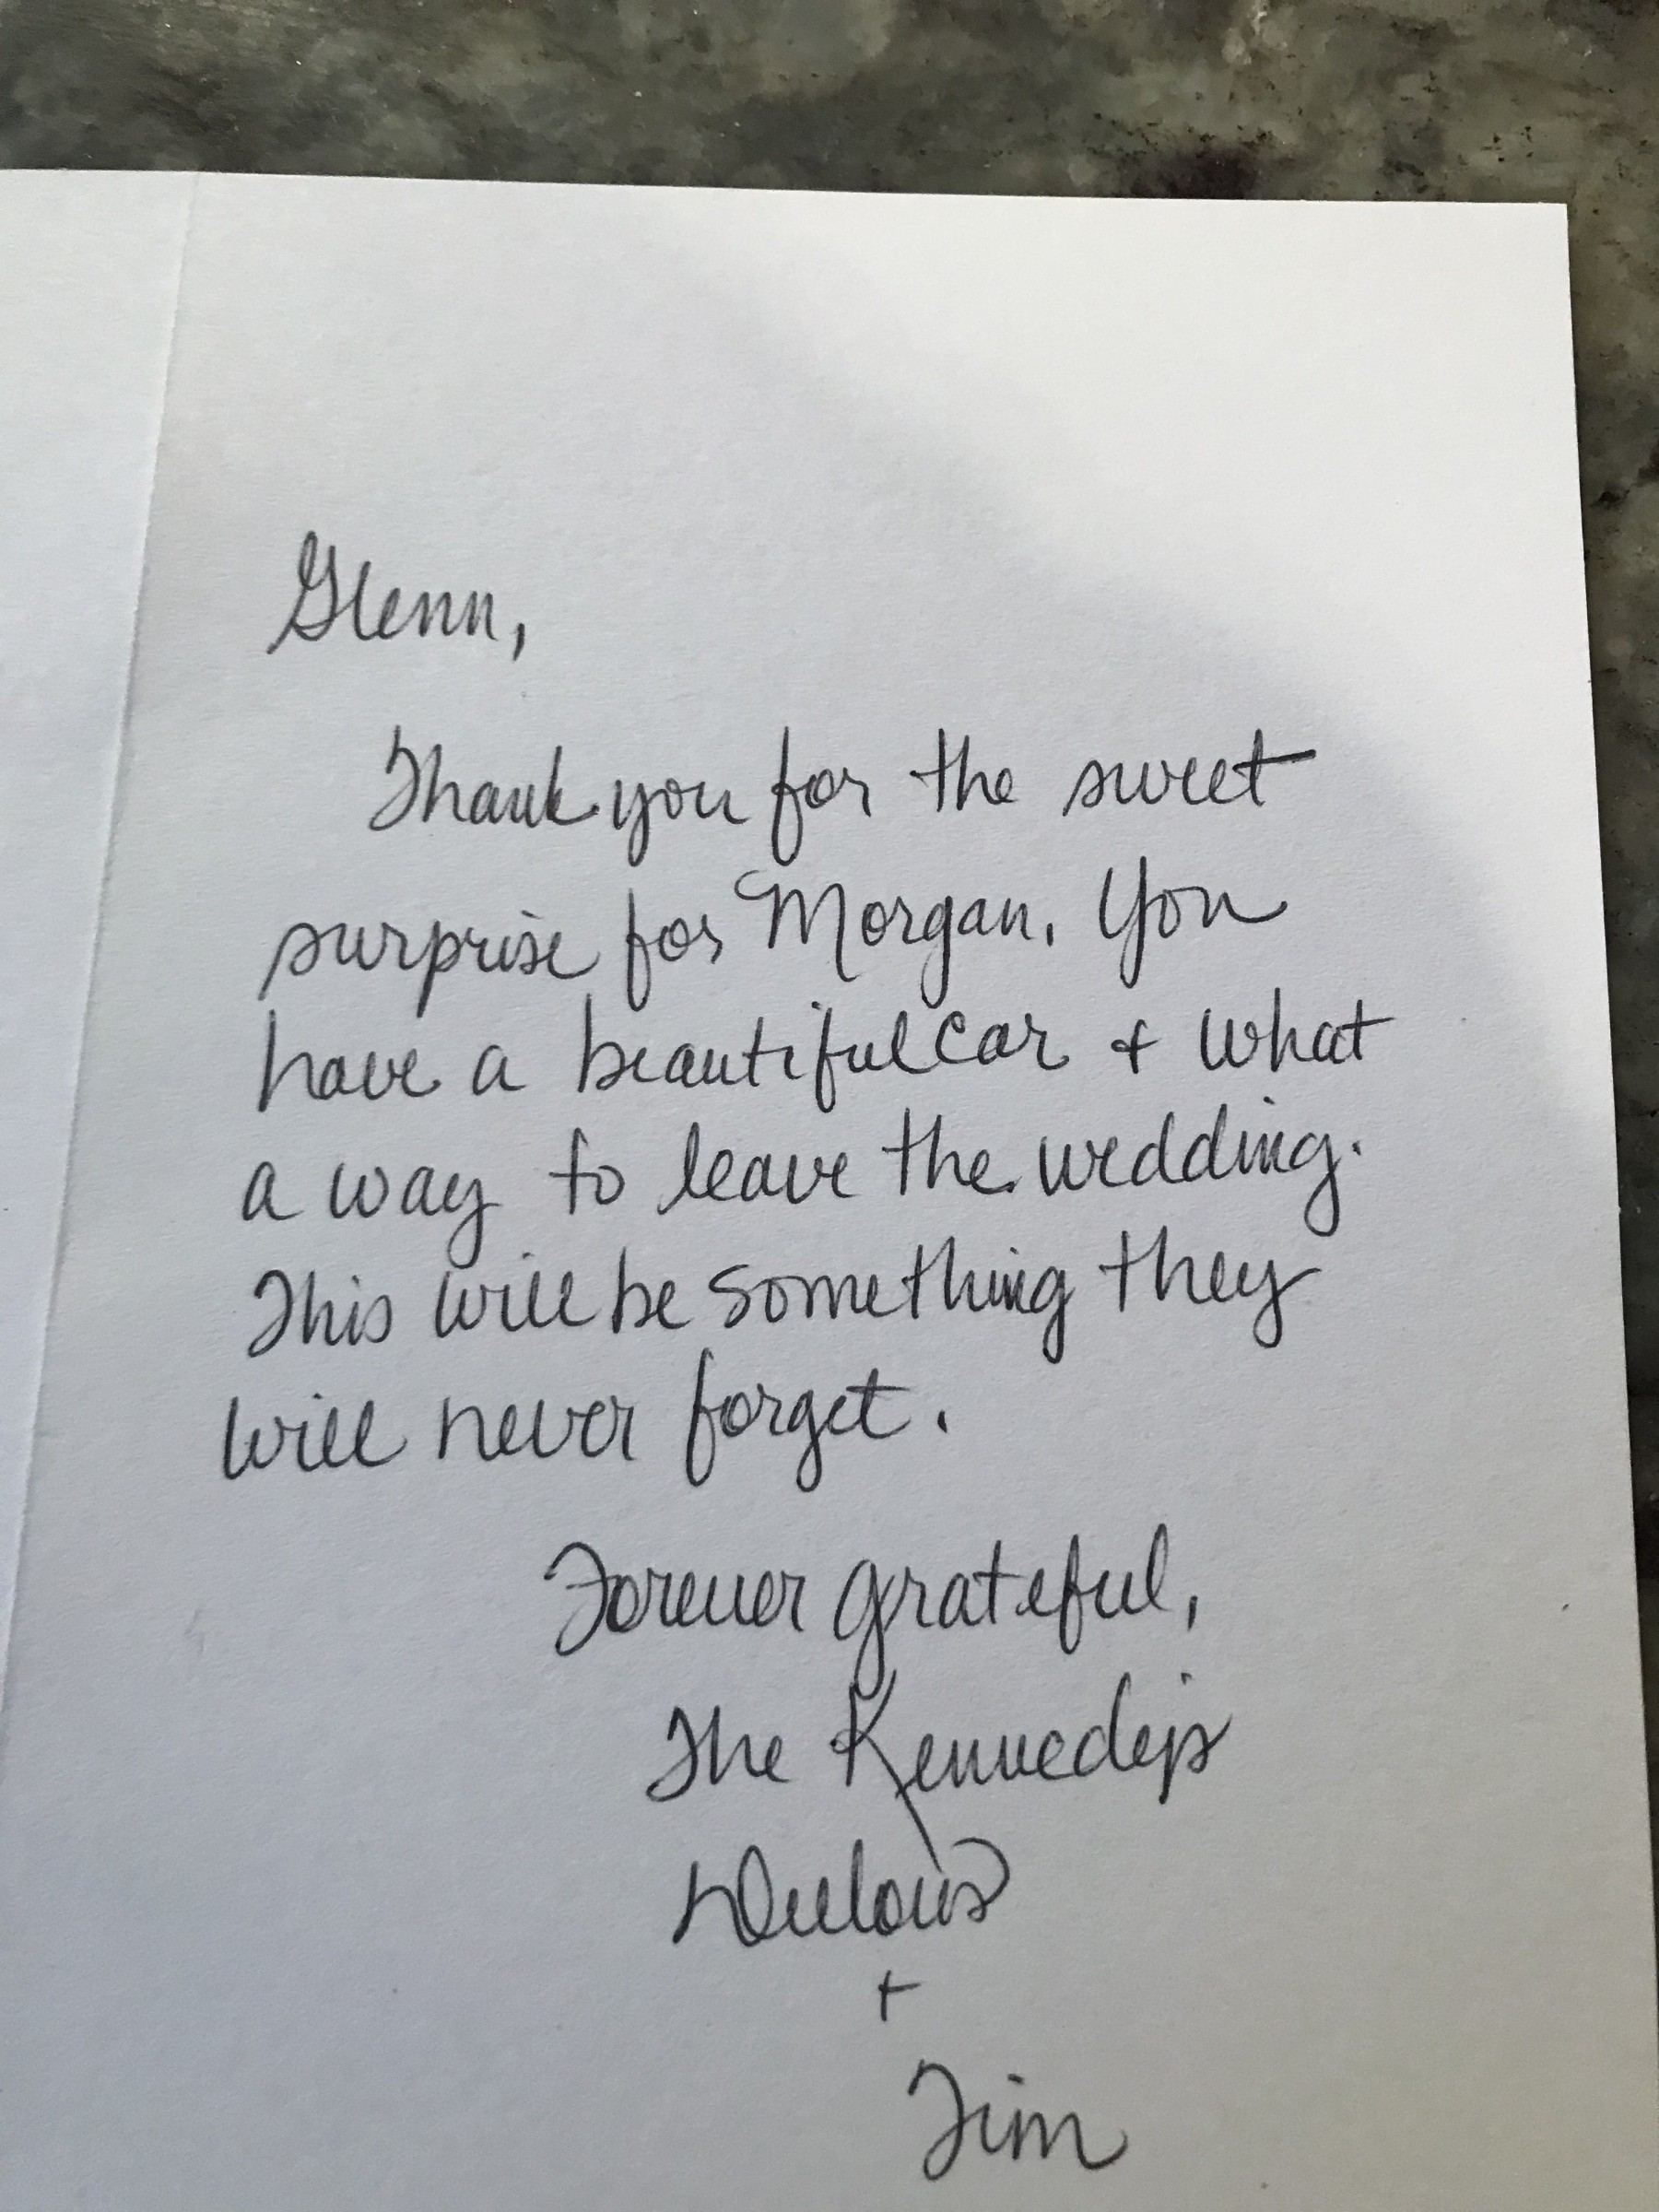 Glenn,
Thank you for the sweet
surprise for Morgan. You
have a beautiful car + what
a way to leave the wedding.
This will be something they
will never forget.
Forever grateful,
The Kennedys
+
Tim